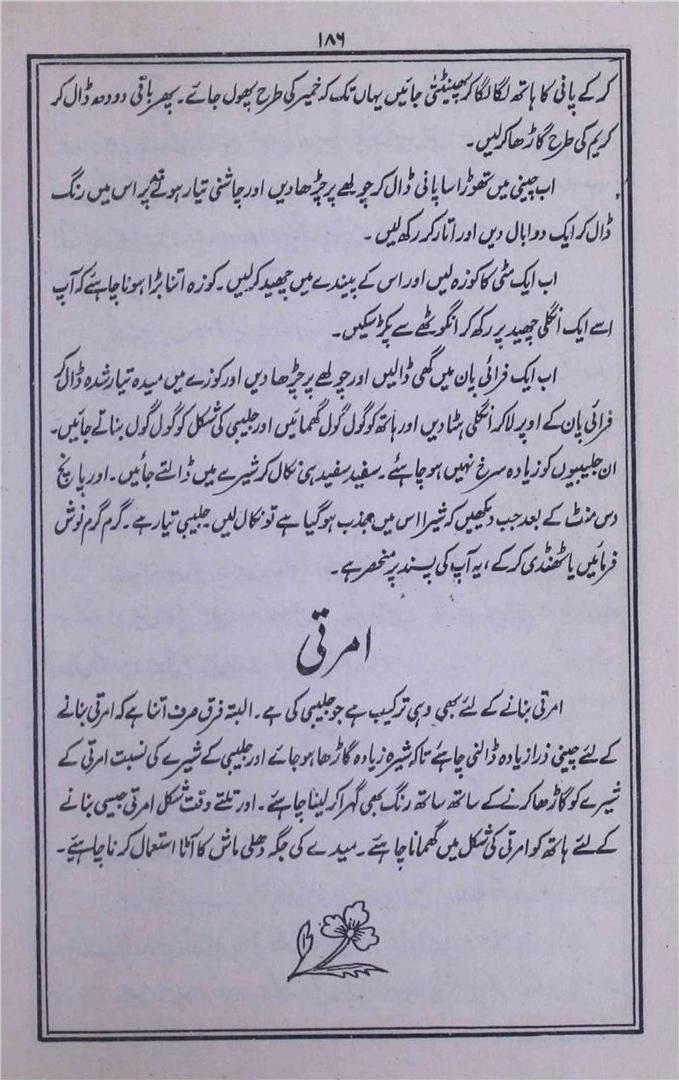 ۱۸۶
کر کے پانی کا ہاتھ لگا لگا کر پھینٹتی جائیں یہاں تک کہ خمیر کی طرح پھول جائے۔ پھر باقی دودھ ڈال کر
کریم کی طرح گاڑھا کر لیں۔
اب چینی میں تھوڑا سا پانی ڈال کر چولہے پر چڑھا دیں اور چاشنی تیار ہونے پر اس میں رنگ
ڈال کر ایک دو ابال دیں اور اتار کر رکھ لیں۔
اب ایک مٹی کا کوزہ لیں اور اس کے پیندے میں چھید کر لیں۔ کوزہ اتنا بڑا ہونا چاہئے کہ آپ
اسے ایک انگلی چھید پر رکھ کر انگوٹھے سے پکڑ سکیں۔
اب ایک فرائی پان میں گھی ڈالیں اور چولہے پر چڑھا دیں اور کوزے میں میدہ تیار شدہ ڈال کر
فرائی پان کے اوپر لا کر انگلی ہٹا دیں اور ہاتھ کو گول گول گھمائیں اور جلیبی کی شکل کو گول گول بناتے جائیں۔
ان جلیبیوں کو زیادہ سرخ نہیں ہو چاہئے۔ سفید سفید ہی نکال کر شیرے میں ڈالتے جائیں۔ اور پانچ
دس منٹ کے بعد جب دیکھیں کہ شیرا اس میں جذب ہو گیا ہے تو نکال لیں۔ جلیبی تیار ہے۔ گرم گرم نوش
فرمائیں یا ٹھنڈی کر کے، یہ آپ کی پسند پر منحصر ہے۔
امرتی
امرتی بنانے کے لئے بھی وہی ترکیب ہے جو جلیبی کی ہے۔ البتہ فرق صرف اتنا ہے کہ امرتی بنانے
کے لئے چینی ذرا زیادہ ڈالنی چاہئے تاکہ شیرہ زیادہ گاڑھا ہو جائے اور جلیبی کے شیرے کی نسبت امرتی کے
شیرے کو گاڑھا کرنے کے ساتھ ساتھ رنگ بھی گہرا کر لینا چاہئے۔ اور تلتے وقت شکل امرتی جیسی بنانے
کے لئے ہاتھ کو امرتی کی شکل میں گھمانا چاہئے۔ میدے کی جگہ دھلی ماش کا آٹا استعمال کرنا چاہئے۔